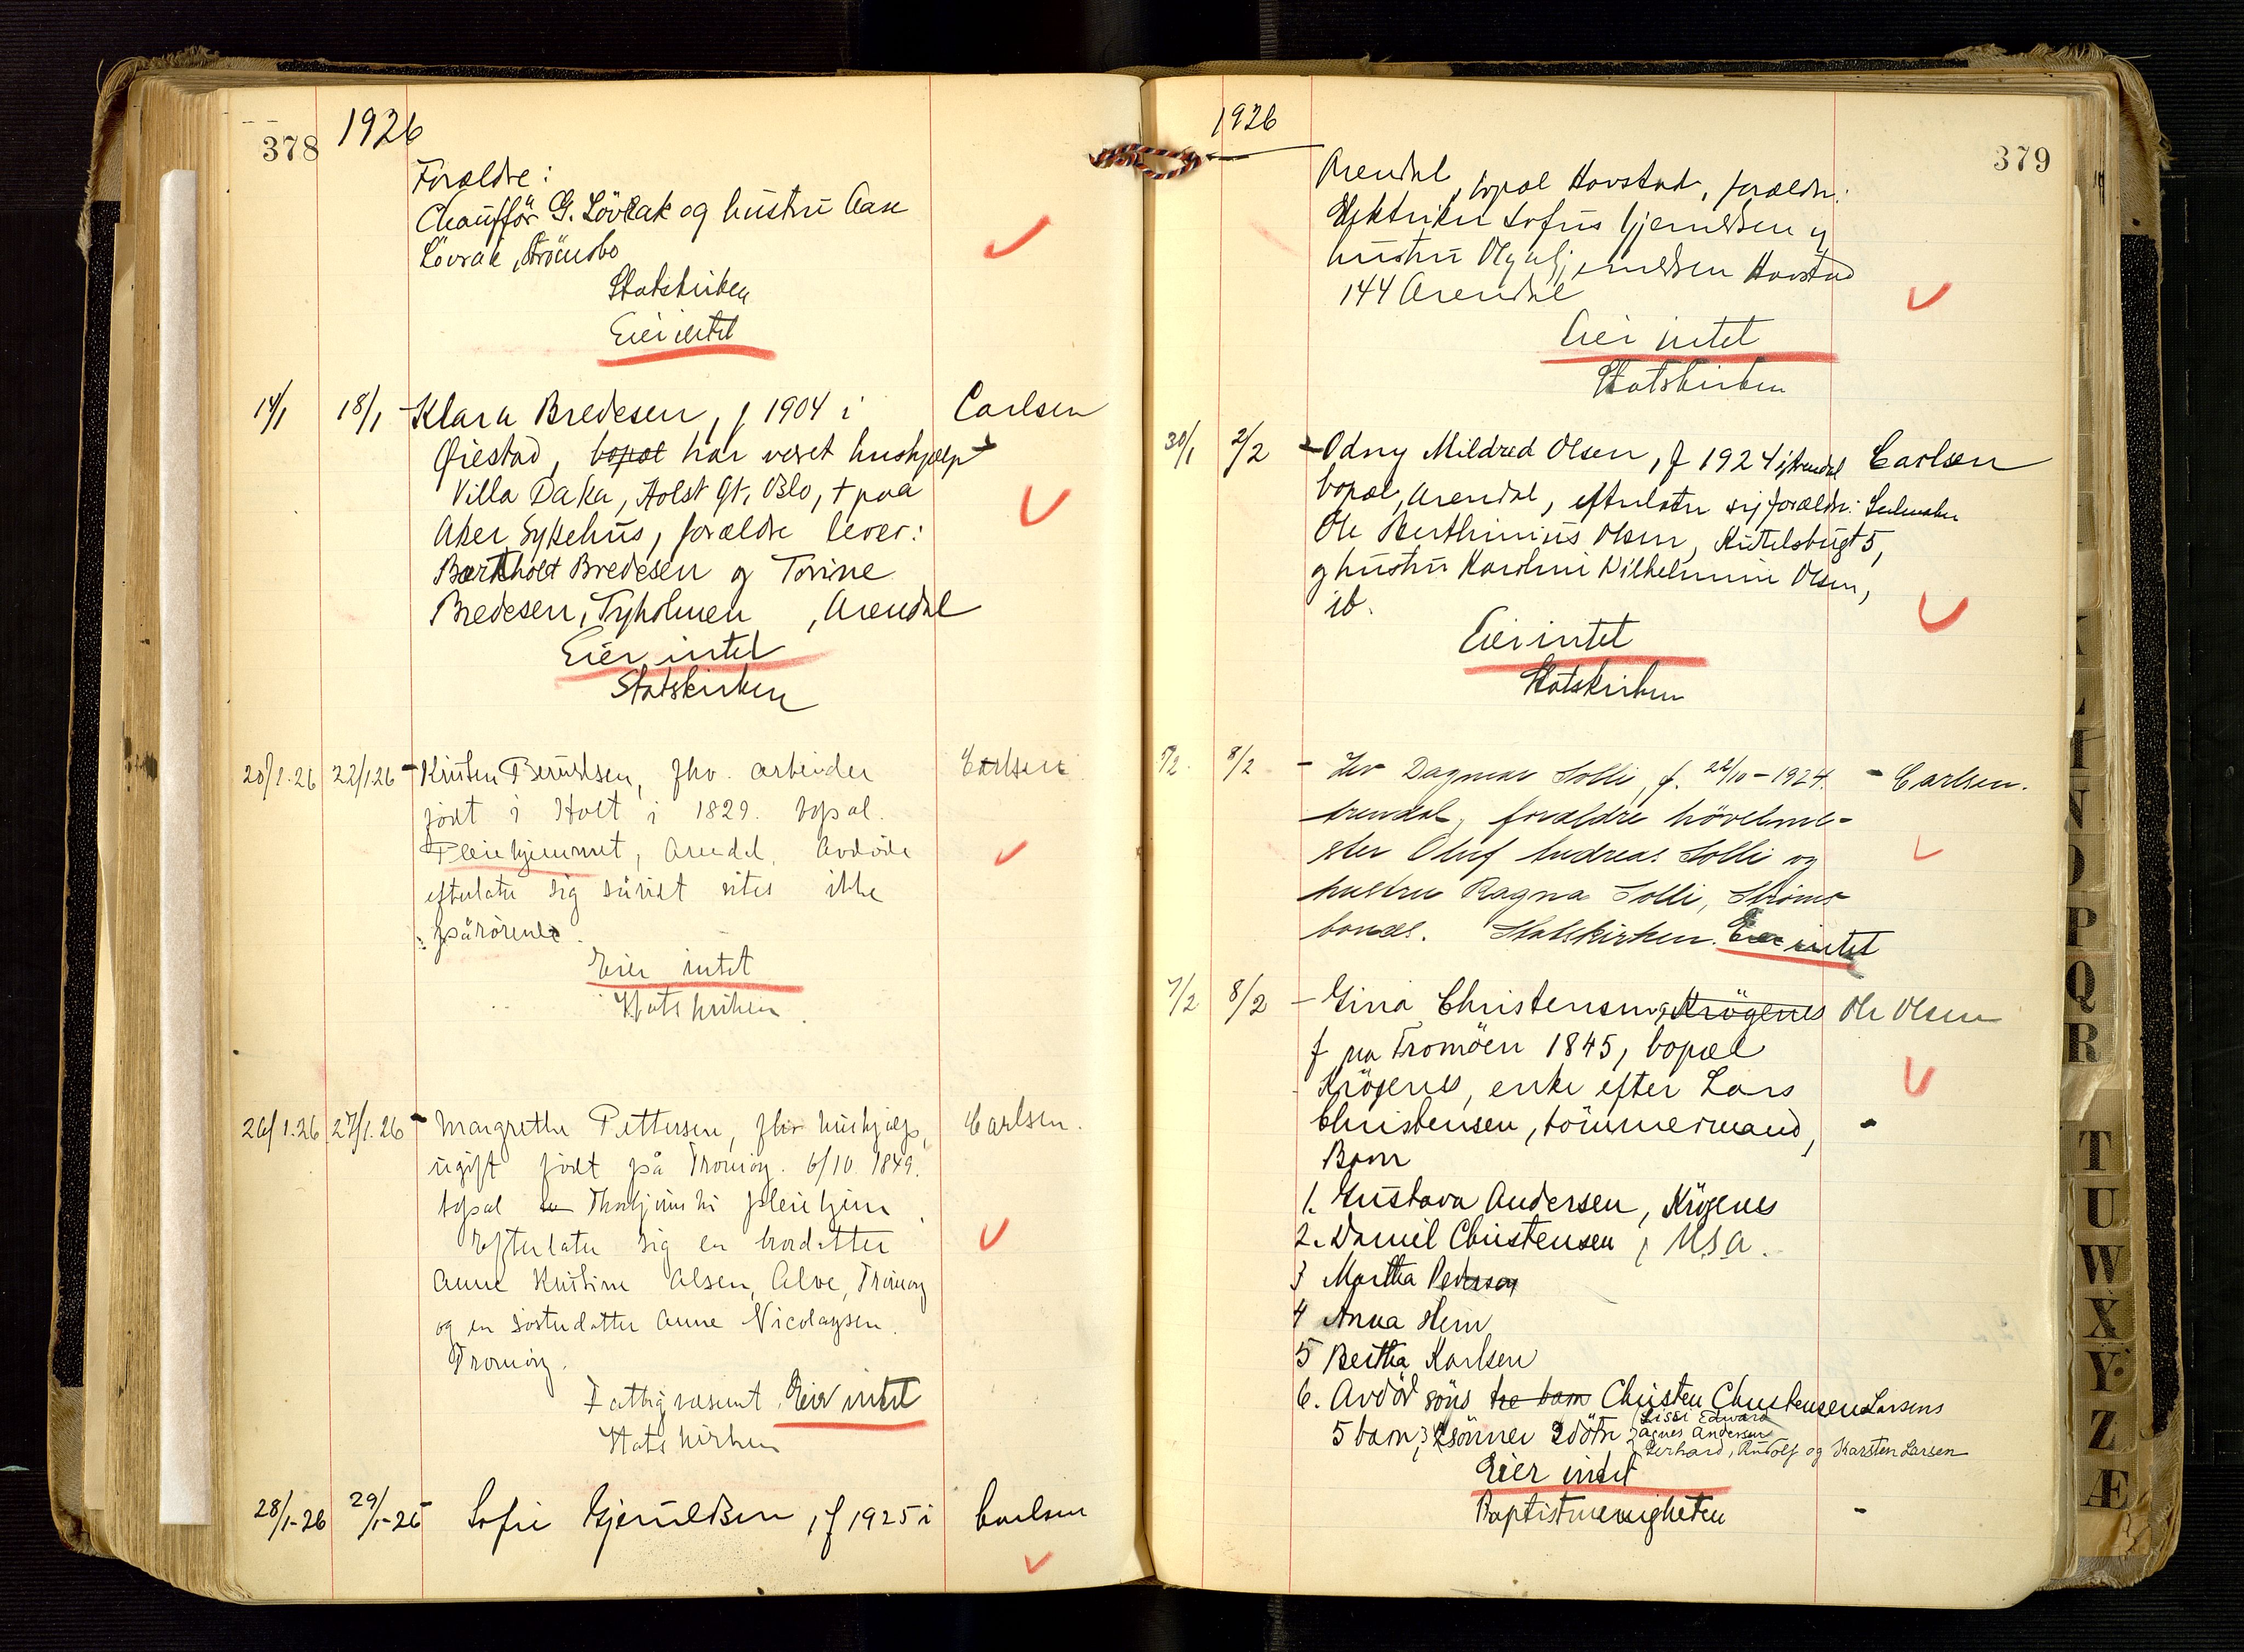 378
1926
Forældre:
Chauffør G. Lövrak og hustru Aase
Lövrak, Strömsbo
Statskirken
Eier intet
14/1 18/1 - Klara Bredesen, f 1904 i Carlsen
Øiestad, bopæl har været hushjælp
Villa Daka, Holst Gt. Oslo, + paa
Aker Sykehus, forældre lever:
Bertholt Bredesen og Torine
Bredesen, Tyholmen, Arendal
Eier intet
Statskirken
20/1.26 22/1 26 - Kristen Berntsen, fhv. arbeider Carlsen
født i Holt i 1829. bopæl.
Pleiehjemmet, Arendal, Avdøde
efterlater sig såvidt vites ikke
pårørende.
Eier intet
Statskirken
26/1.26 27/1.26 - Margrethe Pettersen, fhv hushjælp, Carlsen.
ugift født på Tromöy. 6/10. 1849.
bopæl pleiehjem
Efterlater sig en brordatter
Anne Kristine Olsen, Alve, Tromöy
og en søsterdatter Anne Nicolaysen
Tromöy.
Fattigvæsenet. Eier intet
Statskirken
28/1-26 29/1-26 Sofie Gjeruldsen, f 1925 i Carlsen
1926
379
Arendal, bopæl Havstad, forældre:
Elektriker Sofus Gjeruldsen og
hustru Olga Gjeruldsen Havstad
144 Arendal
Eier intet
Statskirken
30/1 2/2 - Odny Mildred Olsen, f 1924 i Arendal Carlsen
bopæl, Arendal, efterlater sig forældre: Seilmaker
Ole Berthinius Olsen, Kittelsbugt 5,
og hustru Karoline Wilhelmine Olsen,
ib.
Eier intet
Statskirken
5/2. 8/2 - Dagmar Solli, f. 22/10-1924. - Carlsen.
Arendal, forældre hövelme-
ster Oluf Andreas Solli og
hustru Ragna Solli, Ströms-
bones. Statskirken. Eier intet
7/2 8/2 - Gina Christensen, Krögenes Ole Olsen
f paa Tromöen 1845, bopæl
Krögenes, enke efter Lars
Christensen, tömmermand,
Barn
1. Gustava Andersen, Krögenes
2. Daniel Christensen, U.S.A.
3 Martha Pederson
4 Anna Hein
5 Bertha Karlsen
6. Avdöd söns tre barn Christen Christensen Larsens
5 barn, 3 sönner 2 dötre Lissi Edward
Agnes Andersen
Gerhard, Rudolf og Karsten Larsen
Eier intet
Baptistmenigheten
K
L
N
O
P
Q
R
T
U
W
X
Y
Z
Æ